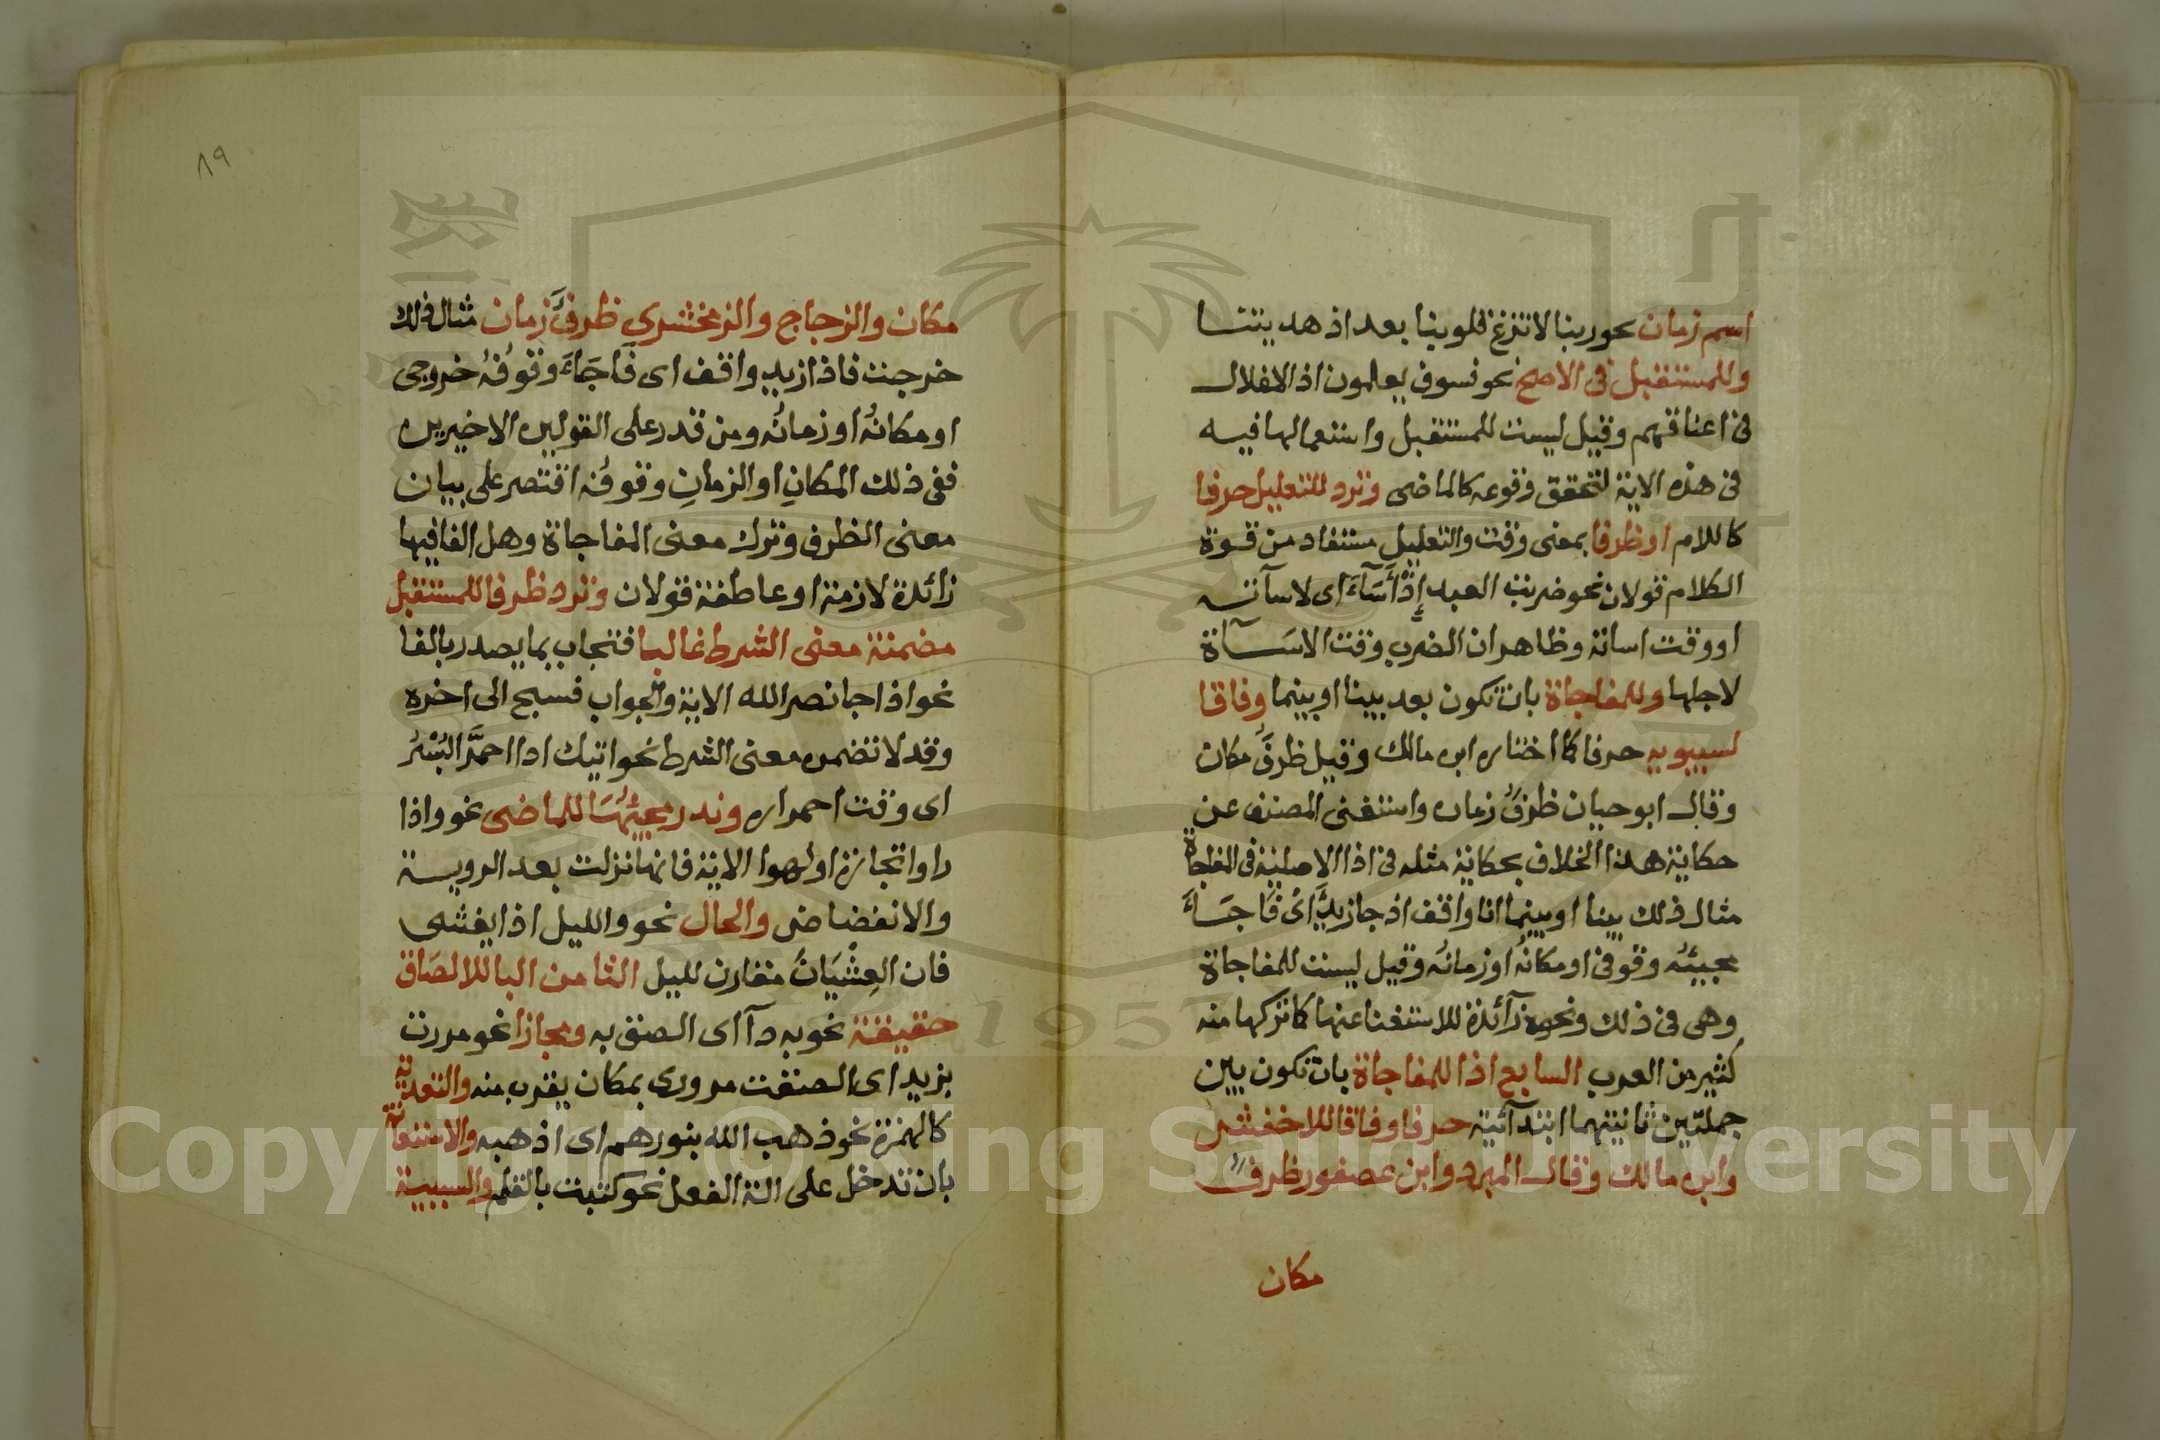 اسم زمان نحو ربنا لا تزغ قلوبنا بعد اذ هديتنا
وللمستقبل في الاصح نحو فسوف يعلمون اذ الاغلال
في اعناقهم وقيل ليست للمستقبل واستعمالها فيه
في هذه الاية لتحقق وقوعه كالماضي وترد للتعليل حرفا
كاللام او ظرفا بمعنى وقت والتعليل مستفاد من قوة
الكلام قولان نحو ضربت العبد إِذْ أَسَآءَ اى لاسآته
او وقت اساته وظاهر ان الضرب وقت الاسَآة
لاجلها وللمفاجاة بان تكون بعد بينا او بينما وفاقا
لسيبويه حرفا كما اختاره ابن مالك وقيل ظرفُ مكان
وقال ابو حيان ظرفُ زمان واستغنى المصنف عن
حكاية هذا الخلاف بحكاية مثله في اذا الاصلية في المفاجاة
مثال ذلك بينا او بينما انا واقف اذ جا زيدٌ اىْ فَاجَاءَ
مجيئه وقوفي او مكانُه او زمانُه وقيل ليست للمفاجاة
وهي في ذلك ونحوه زآئدة للاستغنا عنها كما تركها منه
كثير من العرب السابع اذا للمفاجاة بان تكون بين
جملتين ثانيتهما ابتدآئية حرفا وفاقا للاخفش
وابن مالك وقال المبرد وابن عصفور ظرفُ
مكان
٨٩
مكان والزجاج والزمخشري ظرفَ زمان مثال ذلك
خرجت فاذا زيد واقف اى فَاجَاءَ وقوفُه خروجي
او مكانُه او زمانُه ومن قدر على القولين الاخيرين
ففي ذلك المكانِ او الزمانِ وقوفُه اقتصر على بيان
معنى الظرف وترك معنى المفاجاة وهل الفا فيها
زائدة لازمة او عاطفة قولان وترد ظرفا للمستقبل
مضمنة معنى الشرط غالبا فتجاب بما يصدر بالفا
نحو اذا جا نصر الله الاية والجواب فسبح الى اخره
وقد لا تضمن معنى الشرط نحو اتيك اذا احمرَّ البُسْرُ
اى وقت احمراره وندر مجيئُهَا للماضي نحو واذا
راوا تجارة او لهوا الاية فانها نزلت بعد الروية
والانفضاض والحال نحو والليل اذا يغشى
فان الغِشْيَانَ مقارن لليل الثامن البا للالصَاق
حقيقة نحو به دآ اى الصق به ومجازا نحو مررت
بزيد اى الصقت مرورى بمكان يقرب منه والتعدية
كالهمزة نحو ذهب الله بنورهم اى اذهبه والاستعانة
بان تدخل على الة الفعل نحو كتبت بالقلم والسببية
Copyright © King Saud University
1957